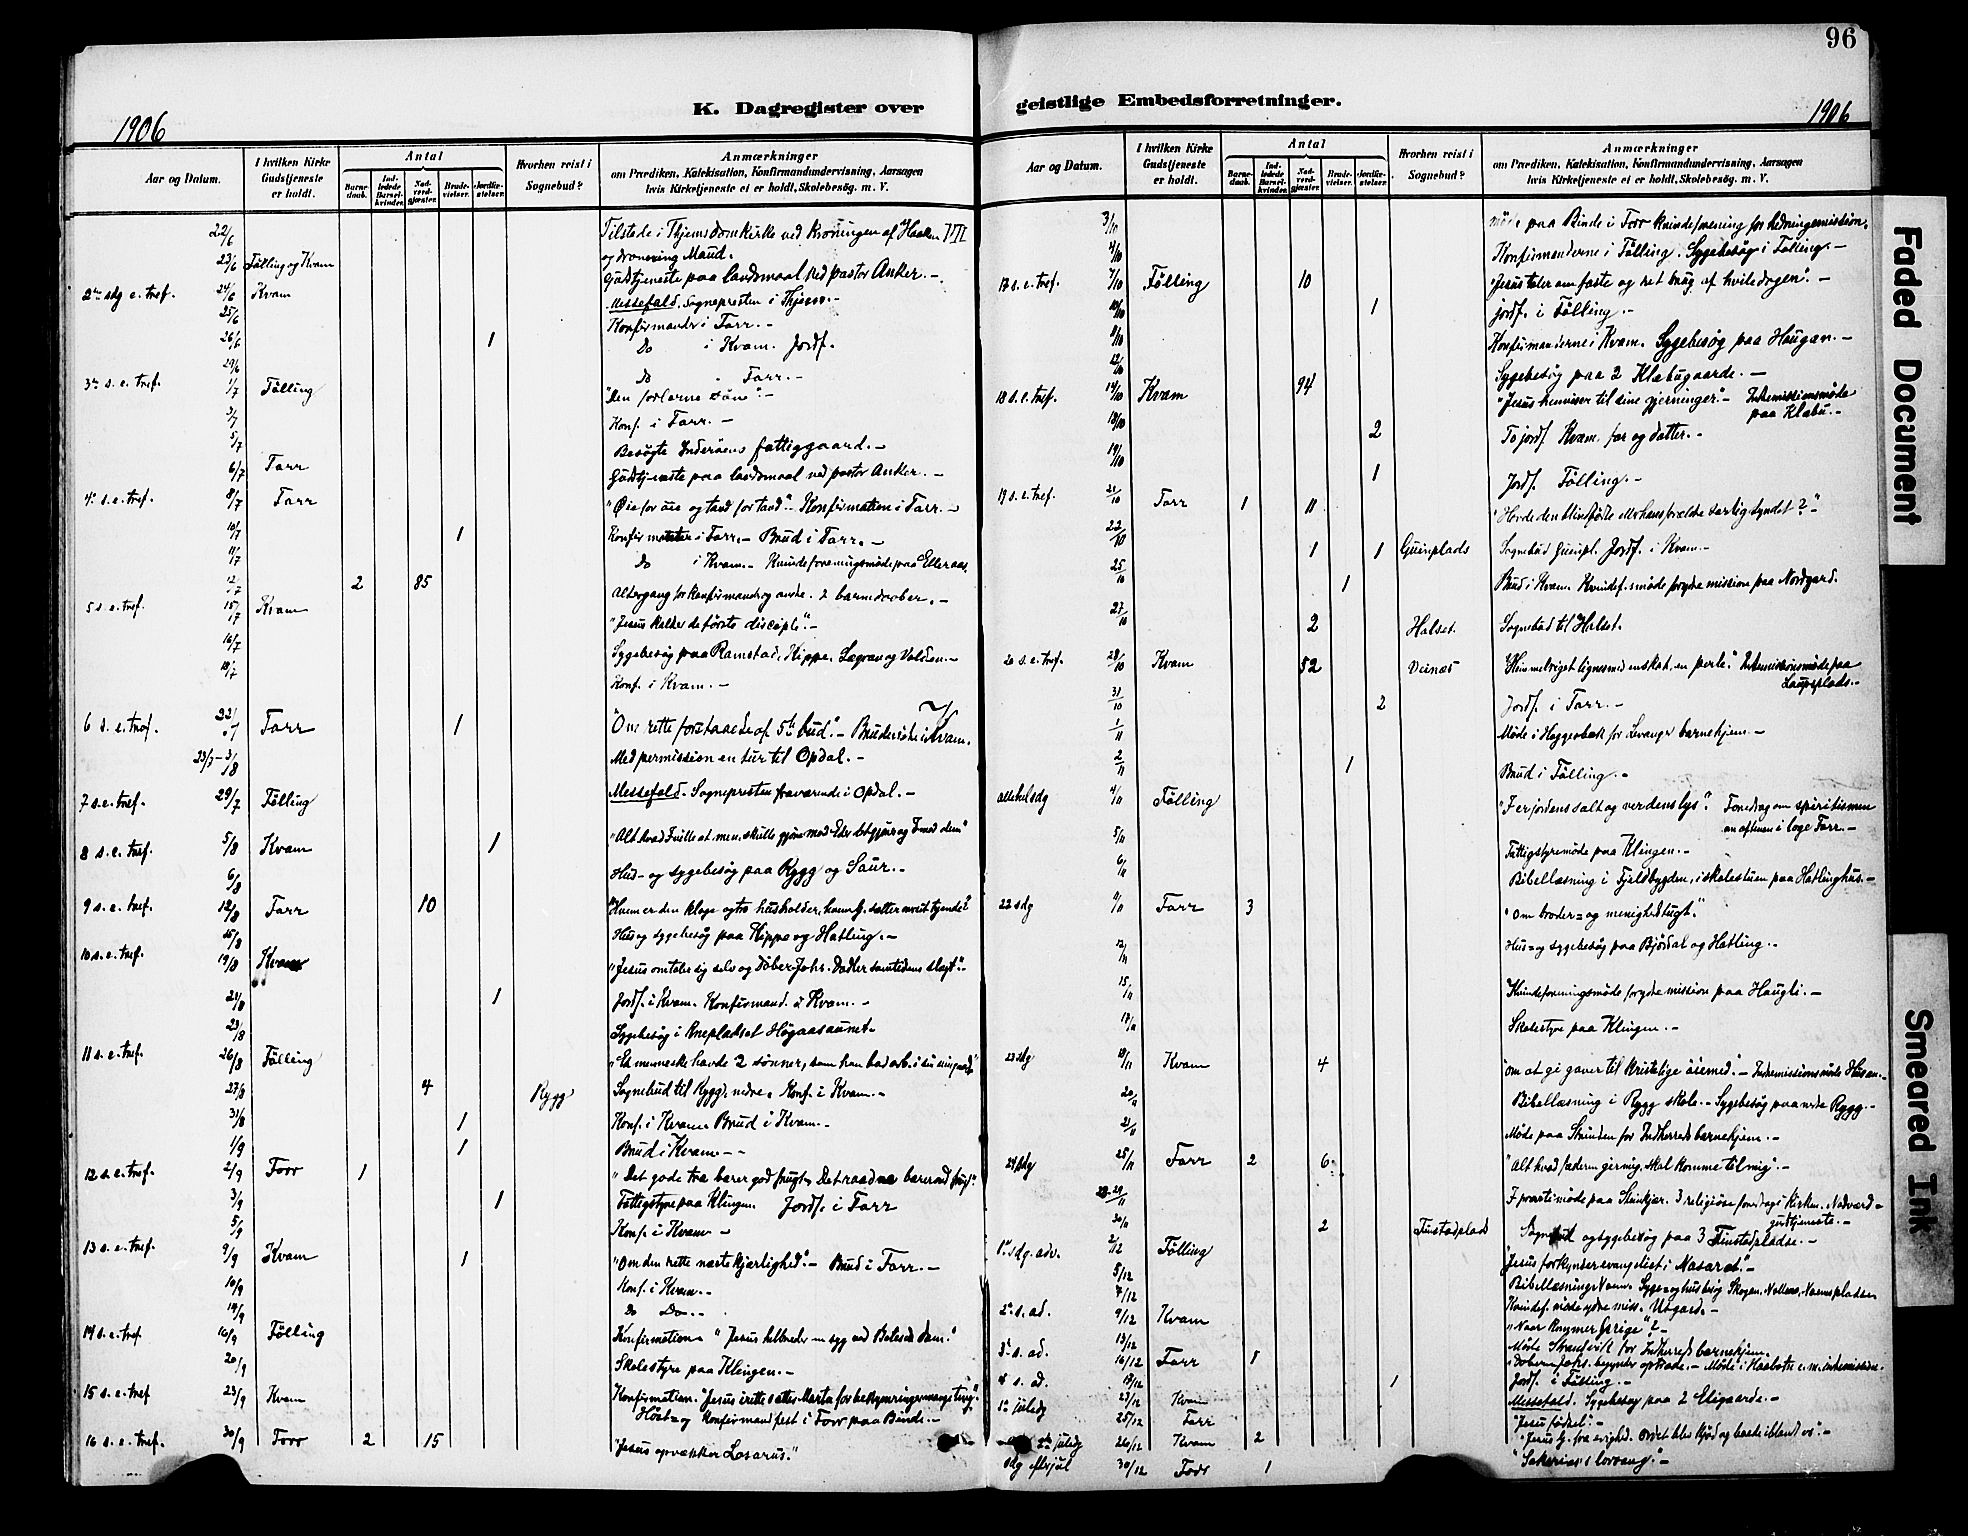 96
K. Dagregister over geistlige Embedsforretninger.
1906
1906
Aar og Datum.
I hvilken Kirke Gudstjeneste er holdt.
Antal
Barnedaab.
Indledede Barselkvinder.
Nadverdgjæster.
Brudevielser.
Jordfæstelser.
Hvorhen reist i Sognebud?
Anmærkninger
om Prædiken, Katekisation, Konfirmandundervisning, Aarsagen
hvis Kirketjeneste ei er holdt, Skolebesøg. m. V.
22/6 Tilstede i Thjems domkirke ved kroningen af Haakon VII
og dronning Maud.
23/6 Følling og Kvam Gudstjeneste paa landsmaal ved pastor Anker. -
2den sdg e. tref. 24/6 Kvam Messefald. Sognepresten i Thjem. -
25/6 Konfirmander i Forr. -
26/6 1 Do i Kvam. Jordf.
29/6 Do " Forr. -
3de s. e. tref. 1/7 Følling "Den fortorne søn". -
3/7 Konf. i Forr. -
5/7 Besøgte Inderøens fattiggaard. -
6/7 Forr Gudstjeneste paa landsmaal ved pastor Anker. -
4. s. e. tref. 8/7 Forr "Øie for øie og tand for tand". - Konfirmation i Forr. -
10/7 1 Konfirmander i Forr. - Brud i Forr. -
11/7 Do i Kvam. - Kvindeforeningsmøde paa
12/7 2 85 Altergang for konfirmander og andre. 2 barnedaaber. -
5 s. e. tref. 15/7 Kvam "Jesus kalder de første disciple". -
16/7 Sygebesøg paa Ramstad, Kippe, og Volden. -
18/7 Konf. i Kvam. -
6 s. e. tref. 22/7 Forr 1 "Om rette forstaaelse af 5te bud". - Brudevielse i Kvam.
23/7 - 3/8 Med permission en tur til Opdal. -
7 s. e. tref. 29/7 Følling Messefald. Sognepresten fraværende i Opdal. -
8 s. e. tref. 5/8 Kvam 1 "Alt hvad I ville at menneskene skulle gjøre mod Eder
6/8 Hus- og sygebesøg paa Rygg og Saur. -
9 s. e. tref. 12/8 Forr 10 "Hvem er den kloge og tro husholder,
15/8 Hus og sygebesøg paa Kippe og Hatling. -
10 s. e. tref. 19/8 Kvam "Jesus omtaler sig selv og Døber Johs. Dadler samtidens slegt". -
21/8 1 Jordf. i Kvam. Konfirmand. i Kvam. -
23/8 Sygebesøg i Høgaasaunet -
11 s. e. tref. 26/8 Følling "Et menneske havde 2 sønner, som han bad arb. i sin vingaard"
27/8 4 Rygg Sognebud til Rygg, nedre. Konf. i Kvam. -
31/8 1 Konf. i Kvam. Brud i Kvam. -
1/9 1 Brud i Kvam - -
12 s. e. tref. 2/9 Forr 1 "Det gode træ bærer god frugt. Det raadne bærer ond frugt"
3/9 1 Fattigstyre paa Klingen. Jordf. i Forr
5/9 Konf. i Kvam -
13 s. e. tref. 9/9 Kvam 1 "Om den rette næstekjærlighed". - Brud i Forr. -
10/9 Konf. i Kvam. -
14/9 Do Do. -
14 s. e. tref 16/9 Følling Konfirmation. "Jesus helbreder en syg ved Betesda dam."
20/9 Skolestyre paa Klingen. -
15 s. e. tref 23/9 Kvam Konfirmation. "Jesus irettesætter Marta for bekymringer mange ting".
Høst- og konfirmandfest i Forr paa Binde. -
16 s. e. tref. 30/9 Forr 2 15 "Jesus opvækker Lasarus."
Aar og Datum.
I hvilken Kirke Gudstjeneste er holdt.
Antal
Barnedaab.
Indledede Barselkvinder.
Nadverdgjæster.
Brudevielser.
Jordfæstelser.
Hvorhen reist i Sognebud?
Anmærkninger
om Prædiken, Katekisation, Konfirmandundervisning, Aarsagen
hvis Kirketjeneste ei er holdt, Skolebesøg. m. V.
3/10 møde paa Binde i Forr kvindeforening for hedningemission.
4/10 Konfirmanderne i Følling. Sygebesøg i Følling. -
17 s. e. tref. 7/10 Følling 10 "Jesus taler om faste og ret brug af hviledagen". -
10/10 1 jordf. i Følling. -
8/10 Konfirmanderne i Kvam. Sygebesøg paa Haugan. -
12/10 Sygebesøg paa 2 Klæbugaarde. -
18 s. e. tref. 14/10 Kvam 94 "Jesus henviser til sine gjerninger. - Indremissionsmøde
paa Klæbu. -
18/10 2 To jordf. Kvam far og datter. -
19/10 1 Jordf. Følling. -
19 s. e. tref. 21/10 Forr 1 11 "Havde den blindfødte eller hans forældre særlig syndet?"
22/10 1 1 Guinplads Sognebud Guinpl. Jordf. i Kvam. -
25/10 1 Brud i Kvam. Kvindef. smøde for ydre mission paa Nordgard.
27/10 2 Halset. Sognebud til Halset.
20 s. e. tref. 28/10 Kvam 52 "Himmelriget lignes med en skat, en perle." Indremissionsmøde paa
31/10 2 Jordf. i Forr. -
1/11 Møde i Heggesbæk for Levanger barnehjem. -
2/11 1 Brud i Følling. -
allehelsdg 4/11 Følling "I er jordens salt og verdens lys". Foredrag om spiritismen
om aftenen i loge Forr. -
5/11 Fattigstyremøde paa Klingen. -
6/11 Bibellæsning i Fjeldbygden, i skolestuen paa Hatlinghus. -
22 sdg Forr 3 "Om broder- og menighedstugt."
12/11 Hus- og sygebesøg paa Bjørdal og Hatling. -
15/11 Kvindeforeningsmøde for ydre mission paa Haugli. -
17/11 Skolestyre paa Klingen. -
23 sdg 18/11 Kvam 4 "om at gi gaver til kristelige øiemed". - Indremissionsmøde
20/11 Bibellæsning i Rygg skole. - Sygebesøg paa nedre Rygg. -
21/11 Møde paa Stranden for Indherreds barnehjem. -
24 sdg 25/11 Forr 2 6 "Alt hvad faderen gir mig, skal komme til mig". -
28-29/11 I prostimøde paa Stenkjær. 3 religiøse foredrag i kirken. Nadverd-
gudstjeneste. -
30/11 2 Tunstadplads Sognebud og sygebesøg paa 3 Tunstadpladse. -
1ste sdg. adv. 2/12 Følling "Jesus forkynder evangeliet i Nasaret". -
5/12 Bibellæsning Sygeog husbesøg Skogan,
7/12 Kvindef. møde ydre miss. Utgard. -
2. s. ad. 9/12 Kvam "Naar kommer Guds rige"? -
13/12 Møde for Indherreds barnehjem.
3. s. ad. 16/12 Forr 1 "Døberen Johs. begynder optræde. -
4 s. ad. 1 Jordf. i Følling. -
23/12 Kvam Messefald. Sygebesøg paa 2
1ste juledg 25/12 Forr "Jesu fødsel". -
2den juledg 26/12 Kvam 2 "Jesus G. fra evighed. Ordet blev kjød og boede iblandt os". -
sdg efter jul 30/12 Forr 1 "Sakarias's lovsang". -
Faded Document
Smeared Ink